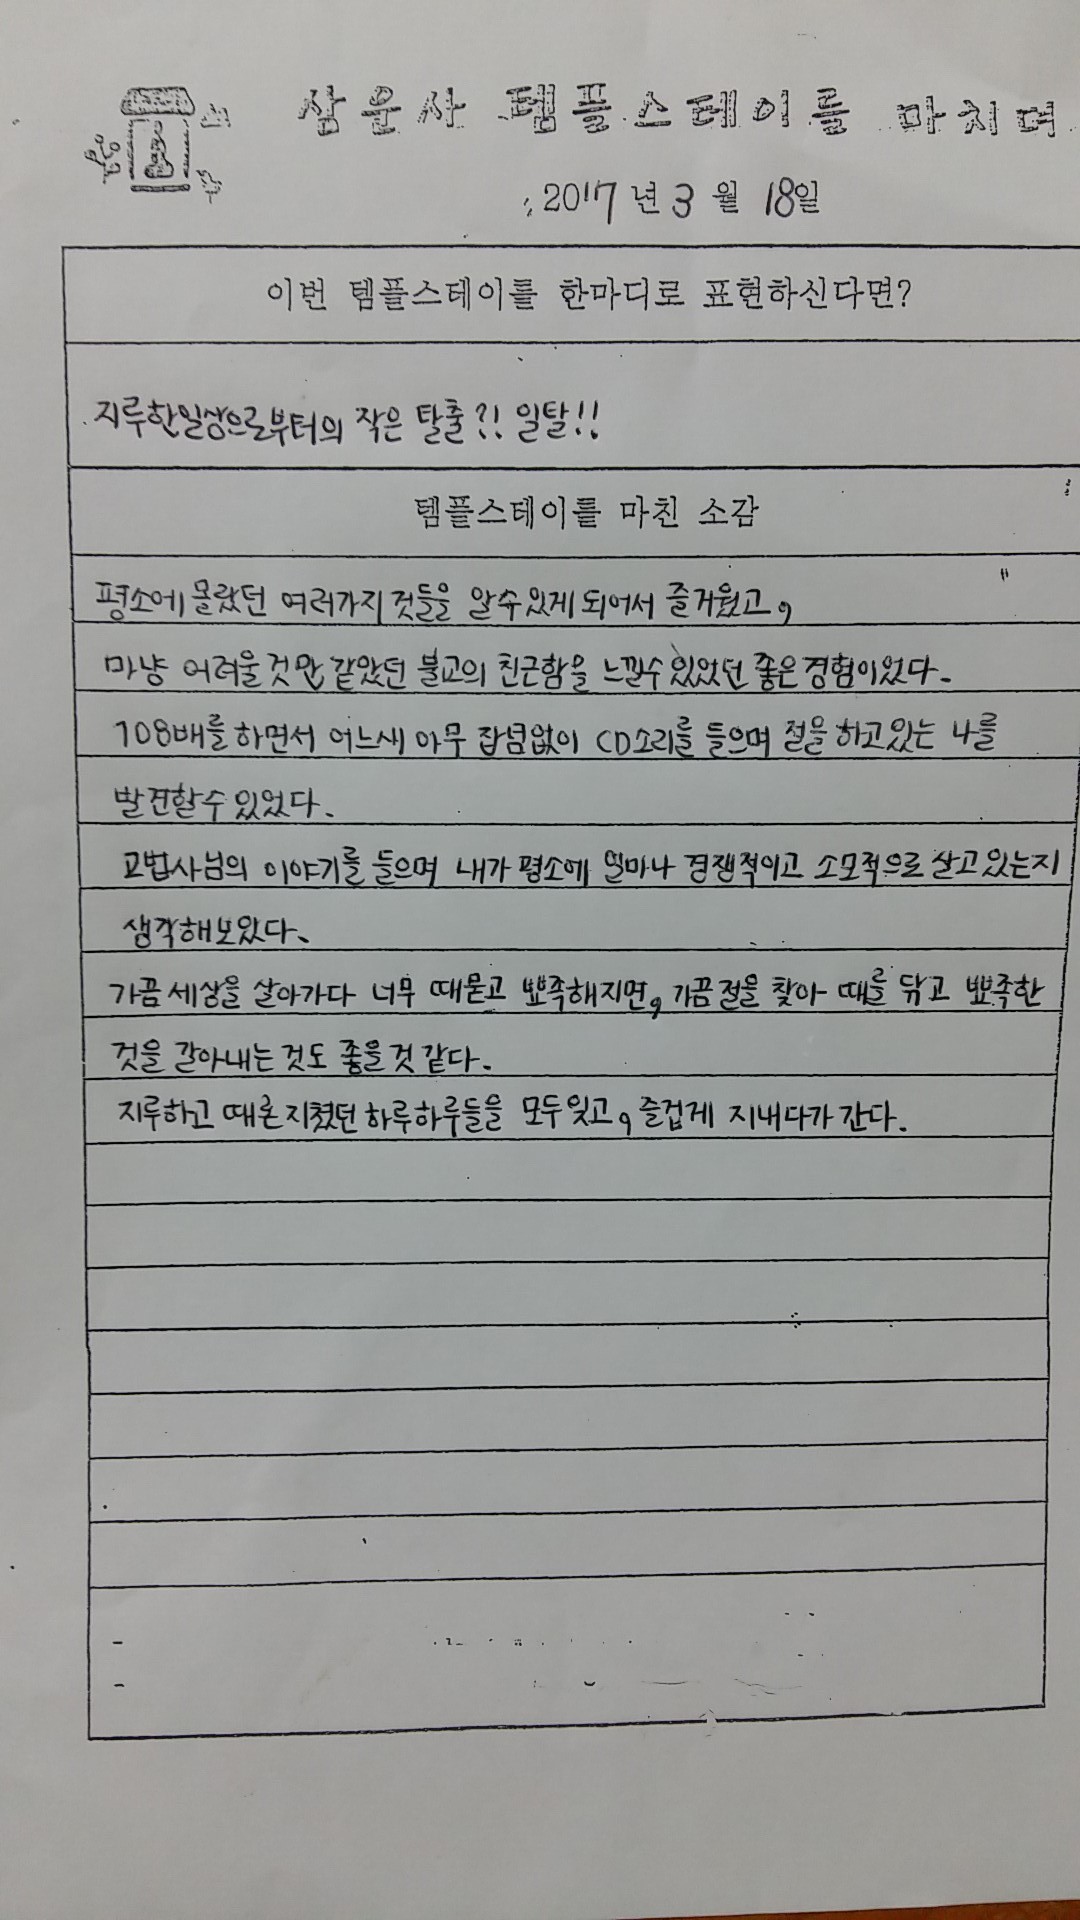 삼운사 템플스테이를 마치며
2017년 3월 18일
이번 템플스테이를 한마디로 표현하신다면?
지루한일상으로부터의 작은 탈출?! 일탈!!
템플스테이를 마친 소감
평소에 몰랐던 여러가지 것들을 알수있게 되어서 즐거웠고,
마냥 어려울것만 같았던 불교의 친근함을 느낄수 있었던 좋은경험이었다.
108배를 하면서 어느새 아무 잡념없이 CD소리를 들으며 절을 하고있는 나를
발견할수 있었다.
교법사님의 이야기를 들으며 내가 평소에 얼마나 경쟁적이고 소모적으로 살고있는지
생각해보았다.
가끔 세상을 살아가다 너무 때묻고 뾰족해지면, 가끔 절을 찾아 때를 닦고 뾰족한
것을 갈아내는 것도 좋을것 같다.
지루하고 때론 지쳤던 하루하루들을 모두잊고, 즐겁게 지내다가 간다.